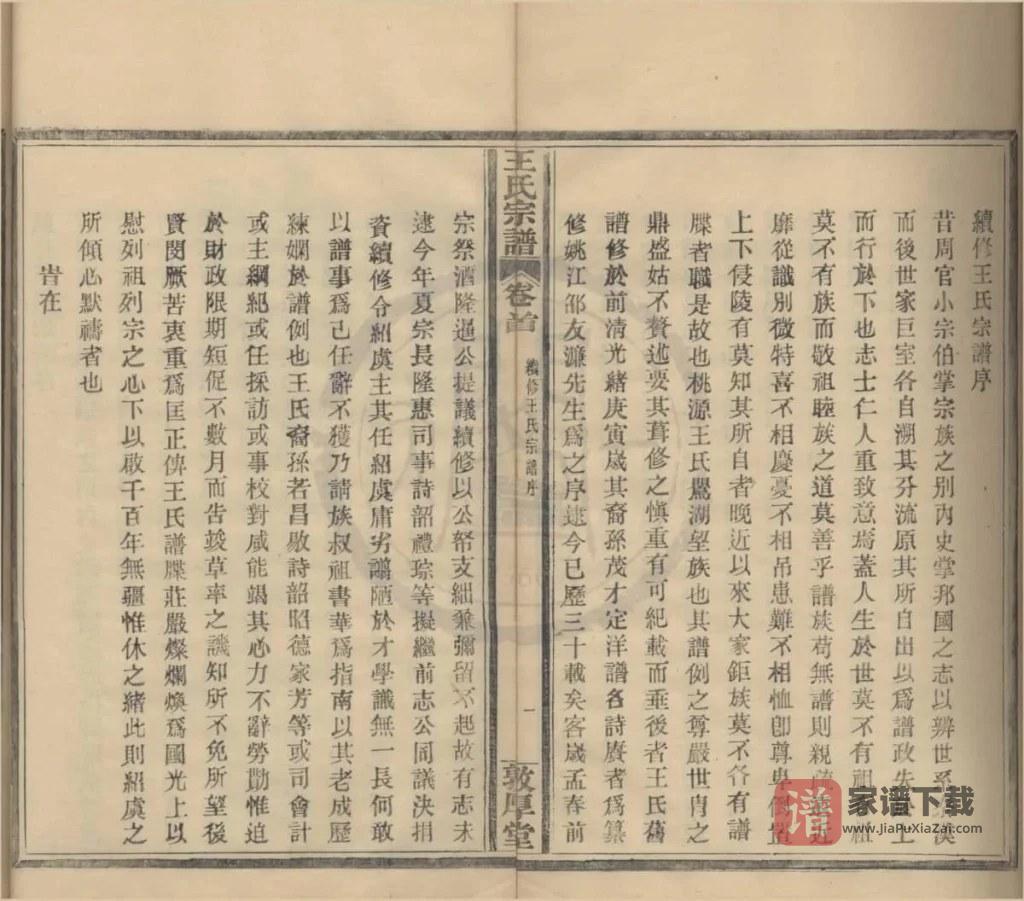 續修王氏宗譜序
昔周官小宗伯掌宗族之別內史掌邦國之志以辨世系漢
而後世家巨室各自溯其分流原其所自出以爲譜政失於上
而行於下也志士仁人重致意焉蓋人生於世莫不有祖
莫不有族而敬祖睦族之道莫善乎譜族苟無譜則親疏近
靡從識別微特喜不相慶憂不相吊患難不相恤卽尊卑倒置
上下侵陵有莫知其所自者晚近以來大家鉅族莫不各有譜
牒者職是故也桃源王氏鸎湖望族也其譜例之尊嚴世冑之
鼎盛姑不贅述要其葺修之愼重有可紀載而垂後者王氏舊
譜修於前清光緒庚寅歲其裔孫茂才定洋譜名詩賡者爲纂
修姚江邵友濂先生爲之序逮今已歷三十載矣客歲孟春前
王氏宗譜
卷首
續修王氏宗譜序
一
敦厚堂
宗祭酒隆遄公提議續修以公帑支絀乘彌留不起故有志未
逮今年夏宗長隆惠司事詩韶禮琮等擬繼前志公同議決捐
資續修令紹虞主其任紹虞庸劣譾陋於才學識無一長何敢
以譜事爲己任辭不獲乃請族叔祖書華爲指南以其老成歷
練嫻於譜例也王氏裔孫若昌敭詩韶昭德家芳等或司會計
或主綱紀或任採訪或事校對咸能竭其心力不辭勞勩惟迫
於財政限期短促不數月而告竣草率之譏知所不免所望後
賢閔厥苦衷重爲匡正俾王氏譜牒莊嚴燦爛煥爲國光上以
慰列祖列宗之心下以啟千百年無疆惟休之緒此則紹虞之
所傾心默禱者也
旹在
譜
家谱下载
www.JiaPuXiaZai.com